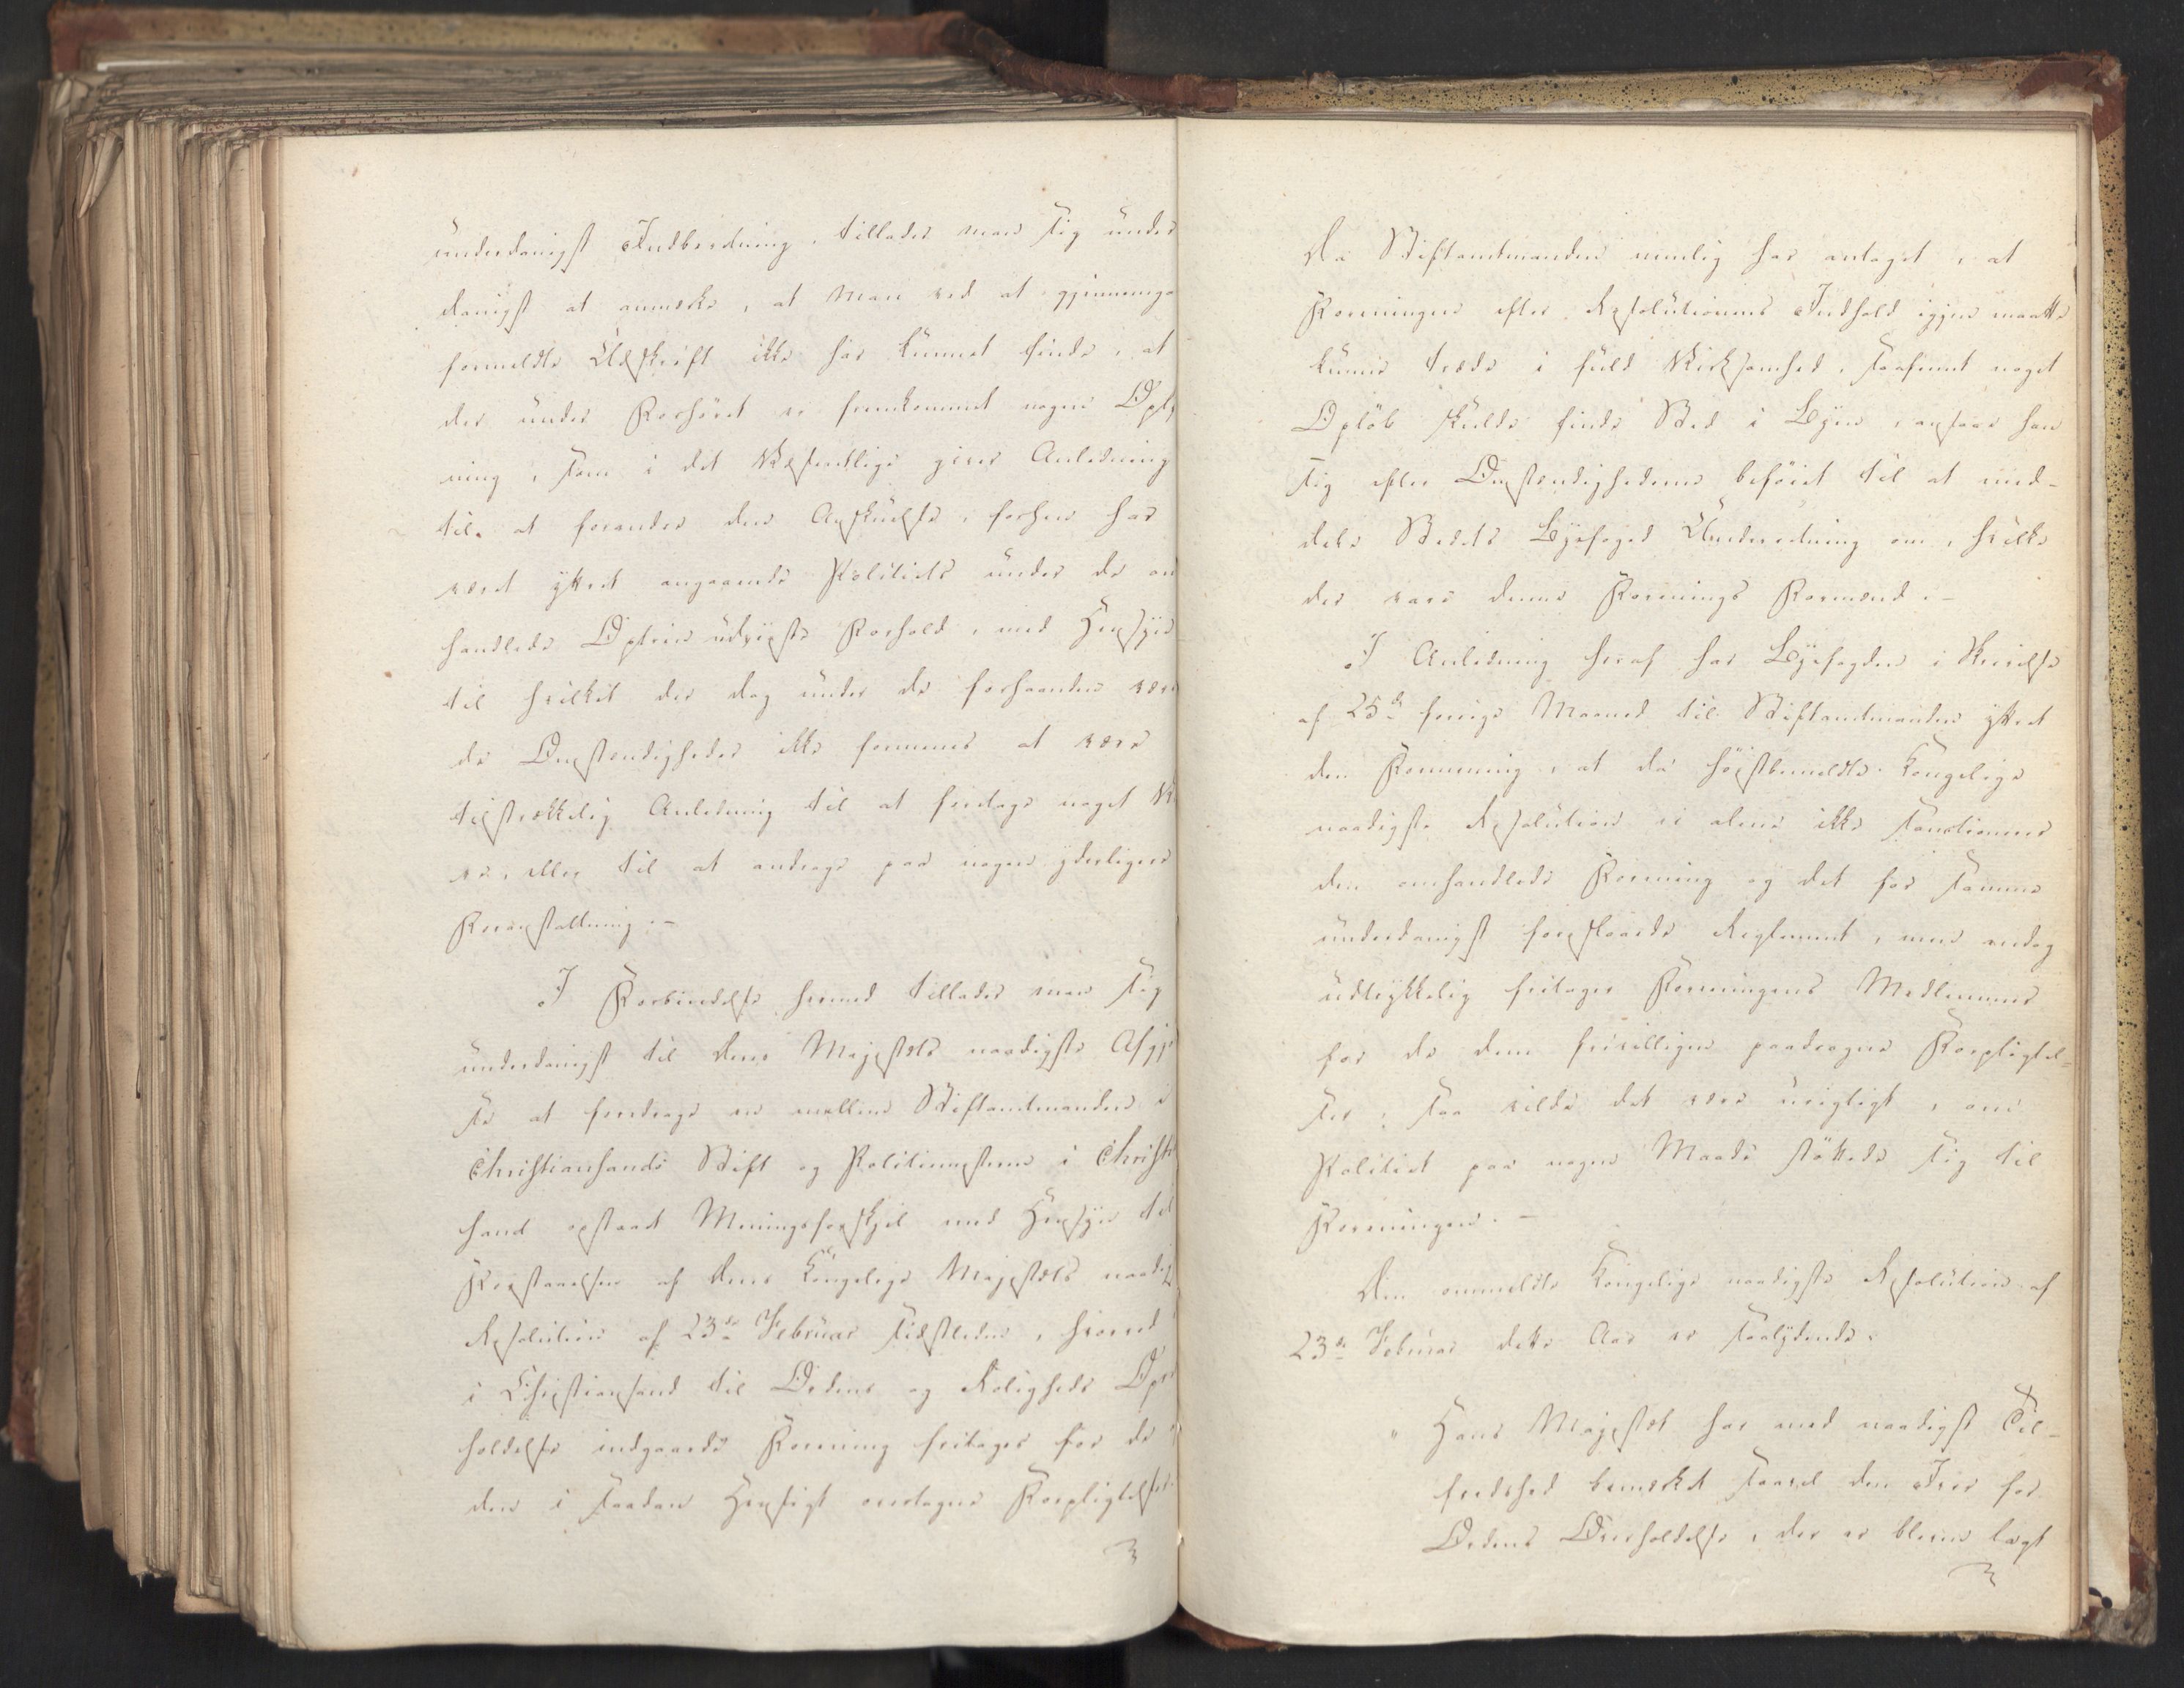 underdanigst Indberetning, tillader man sig under
danigst at anmerke, at Man ved at gjennemga
formeldte Udskrift ikke har kunnet finde, at
der under Forhöret er fremkommet nogen Oplys
ning, som i det Væsentlige giver Anledning
til at forandre den Anskuelse, forhen har
været yttret angaaende Politiets under de om
handlede Optrin udviste Forhold, med Hensyn
til hvilket der dog under de forhaanden vær
de Omstændigheder ikke formenes at være
tilstrækkelig Anledning til at foretage noget Vi
re, eller til at andrage paa nogen yderligere
Foranstaltning.-
I Forbindelse hermed tillader man sig
underdanigst til Deres Majestæts naadigste Afgjö
se at foredrage en mellem Stiftamtmanden i
Christiansands Stift og Politimesteren i Christi
sand opstaaet Meningsforskjel med Hensyn til
Forstaaelsen af Deres Kongelige Majestæts naadig
Resolution af 23de Februar sidstleden, hvorved
i Christiansand til Ordens og Roligheds Opr
holdelse indgaaede Forening fritages for de
den i saadan Hensigt overtagne Forpligtelser.
Da Stiftamtmanden nemlig har antaget, at
Foreningen efter Resolutionens Indhold igjen maatte
kunne træde i fuld Virksomhed, saafremt noget
Oplöb skulde finde Sted i Byen, ansaae han
sig efter Omstændighederne beföiet til at med-
dele Stedets Byefoged Underretning om, hvilke
der vare denne Forenings Formænd.-
I Anledning heraf har Byefogden i Skrivelse
af 25de forrige Maaned til Stiftamtmanden yttret
den Formening, at da höistbemeldte Kongelige
naadigste Resolution ei alene ikke sanctionerer
den omhandlede Forening og det for samme
underdanigst foreslaaede Reglement, men endog
udtrykkelig fritager Foreningens Medlemmer
for de dem frivilligen paadragne Forpligtel-
ser, saa vilde det være urigtigt, om
Politiet paa nogen Maade støttede sig til
Foreningen.-
Den ommeldte Kongelige naadigste Resolution af
23de Februar dette Aar er saalydende:
"Hans Majestæt har med naadigst Til-
fredshed bemerket saavel den Iver for
Ordens Overholdelse, der er bleven lagt